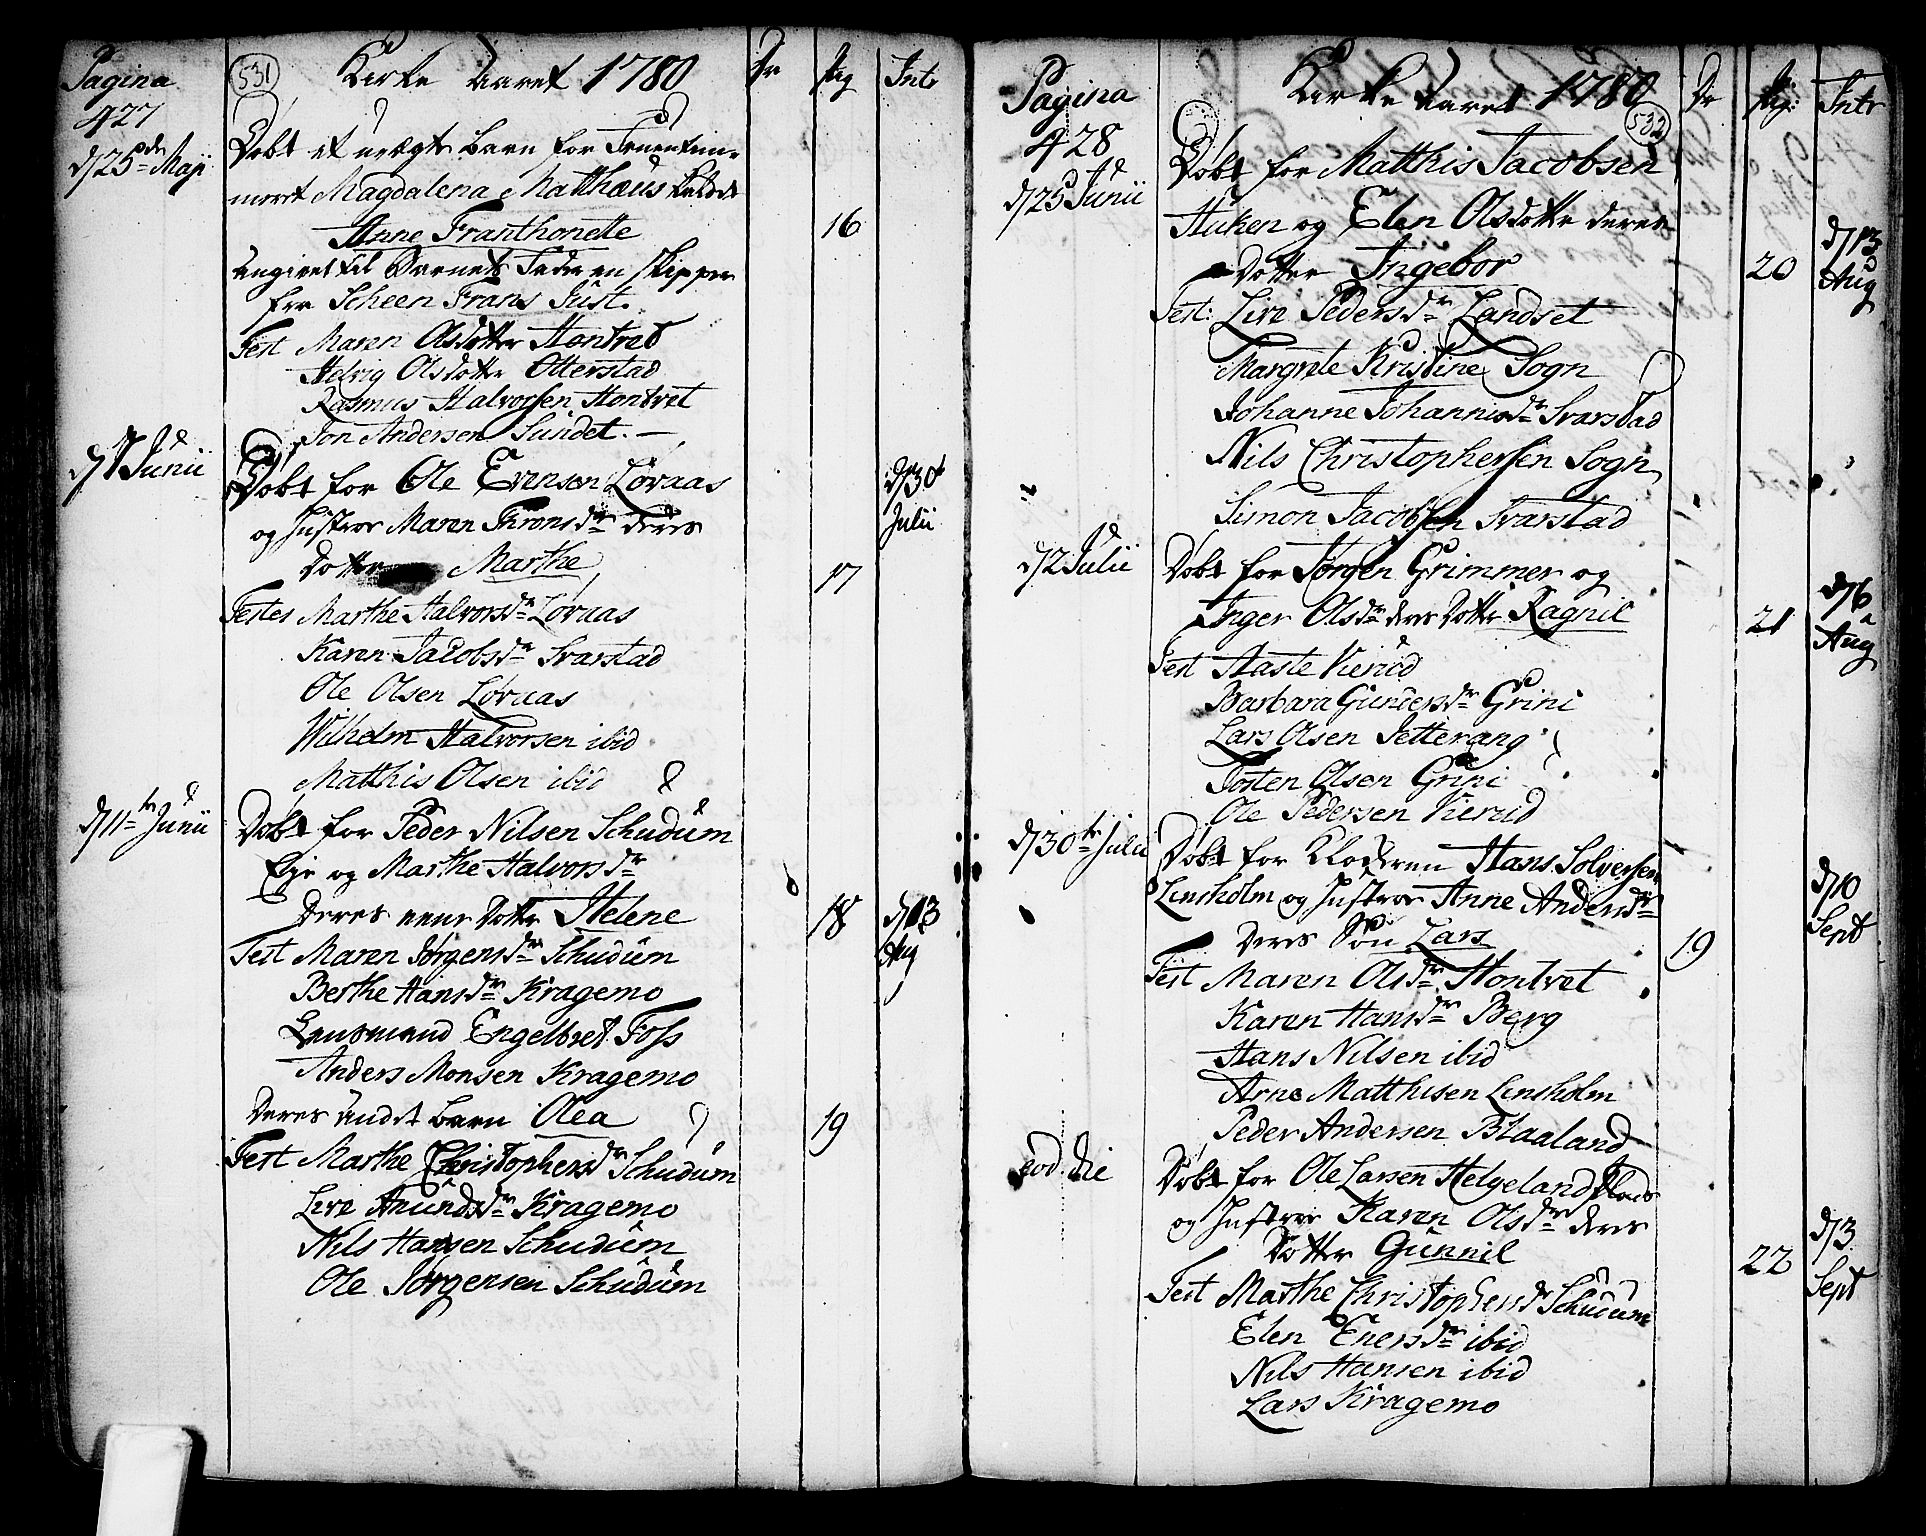 Pagina
427
531
Kirke Aaret 1780
Dr
Pig
Intr
d/25de Maji
Døbt et uægte barn for Fruentim-
meret Magdalena Matthæus kaldet
Anne Franthonette
16
angivet til Barnets Fader en Skipper
fra Scheen Frans Just.
Test Maren Olsdotter Hontvet
Helvig Olsdotter Otterstad
Rasmus Halvorsen Hontvet
Jon Andersen Sundet.
d/1 Junii
Døbt for Ole Evensen Løvaas
d/30
Julii
og Hustroe Maren Throns dr deres
Dotter Marthe
17
Testes Marthe Halvors dr Løvaas
Karen Jacobs dr Svarstad
Ole Olsen Løvaas
Wilhelm Halvorsen ibid
Matthis Olsen ibid
d/11te Junii
Døbt for Peder Nilsen Schudüm
Eje og Marthe Halvors dr
Deres eene Dotter Helene
18
d/13
Aug
Test Maren Jørgens dr Schudüm
Berthe Hans dr Kragemo
Lensmand Engelbret Foss
Anders Monsen Kragemo
Deres andet barn Olea
19
Test Marthe Christophers dr Schudüm
Live Anunds dr Kragemo
Nils Hansen Schudüm
Ole Jørgensen Schudüm
Pagina
428
Kirke Aaret 1780
532
Dr
Pig:
Intr
d/25 Junii
Døbt for Matthis Jacobsen
Huken og Elen Olsdotter deres
Dotter Ingebor
20
d/13
Aug
Test: Live Peders dr Landset
Margrete Kristine Sogn
Johanne Johannis dr Svarstad
Nils Christophersen Sogn
Simon Jacobsen Svarstad
d/2 Julii
Døbt for Jørgen Grimmer og
Inger Ols dr deres Dotter Ragnil
21
d/6
Aug
Test Aaste Vierud
Barbara Gunders dr Grini
Lars Olsen Jetterang
Tosten Olsen Grini
Ole Pedersen Vierud
d/30te Julii
Døbt for Klokkeren Hans Solversen
Lensholm og Hustroe Anne Anders dr
Deres Søn Lars
19
d/10
Sept
Test Maren Ols dr Hontvet
Karen Hans dr Berg
Hans Nilsen ibid
Arne Matthisen Lensholm
Peder Andersen Blaaland
eod. die
Døbt for Ole Larsen Helgeland Plads
og Hustroe Karen Ols dr deres
Dotter Gunnil
22
d/3
Sept
Test Marthe Christophers dr Schudum
Elen Eners dr ibid
Nils Hansen ibid
Lars Kragemo